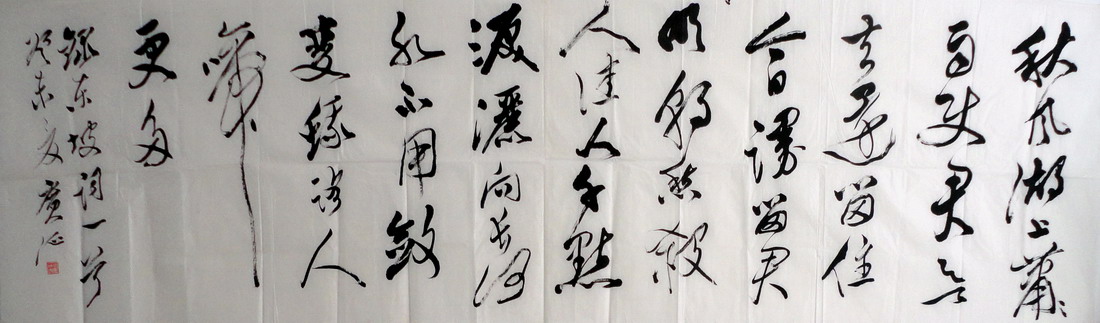 秋风湖上蕭々
雨使君欲
去還留住
今日謾留君
明朝愁殺
人佳人千點
淚灑向長河
水不用斂
雙蛾路人
啼
更多
錄东坡詞一首
癸未夏